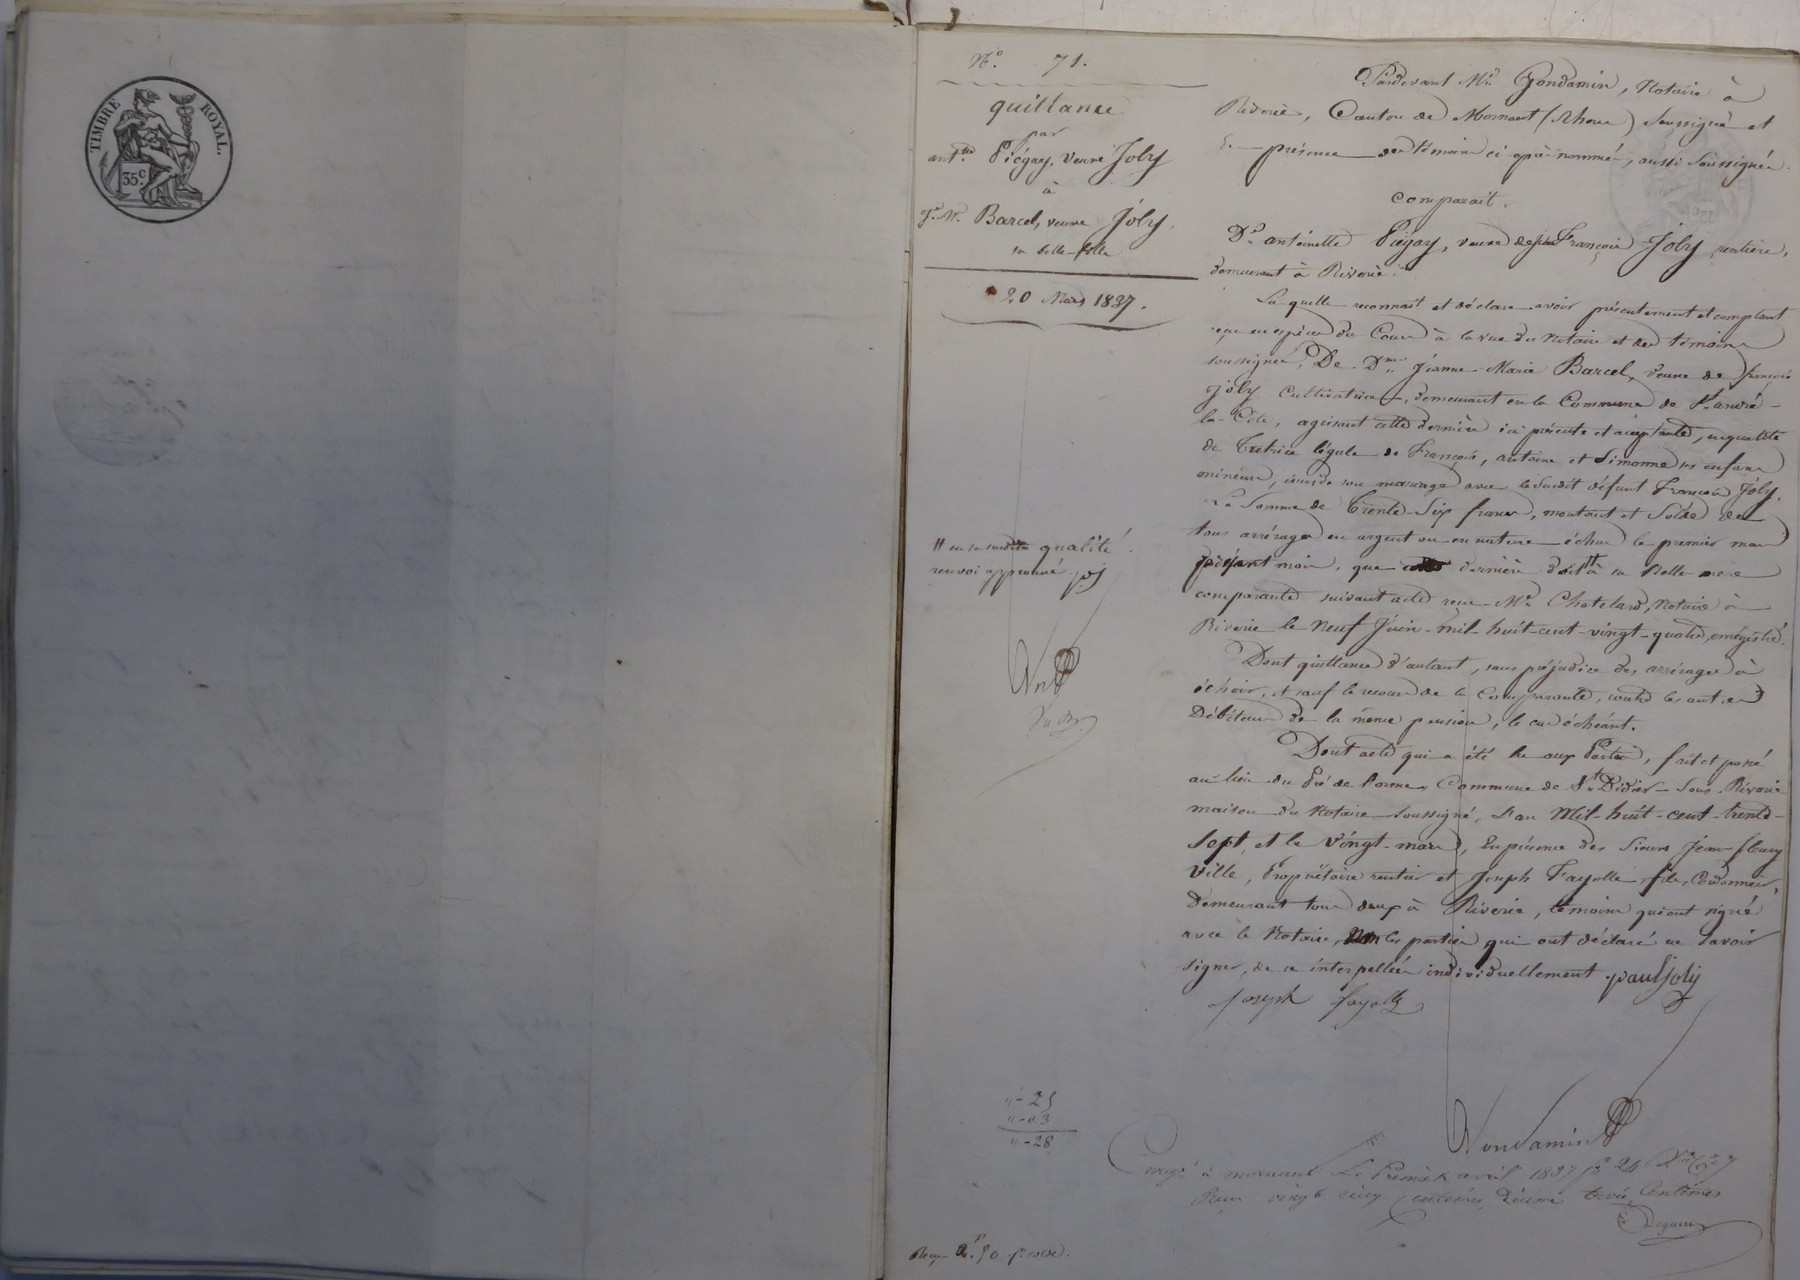 TIMBRE ROYAL.
35.c
N.o 71.
quittance
par
ant.tte Piégay, veuve Joly
à
J.ne M. Barcel, veuve Joly,
sa belle-fille
20 Mars 1837.
Pardevant M.e Gondamin, Notaire à
Riverie, Canton de Mornant (Rhône) soussigné et
En présence des témoins ci après nommés, aussi soussignés.
comparait.
D.e antoinette Piégay, veuve de François Joly, rentière,
demeurant à Riverie.
Laquelle reconnait et déclare avoir présentement et comptant
reçu en espèces du Cours à la vue du Notaire et des témoins
soussignés, De D.me Jeanne-Marie Barcel, veuve de françois
Joly, Cultivatrice, demeurant en la Commune de S.t andré-
la-Côte, agissant cette dernière ici présente et acceptante, en qualité
de Tutrice légale de François, antoine et Simonne ses enfans
mineurs, issus de son mariage avec le susdit défunt François Joly,
La Somme de Trente-Six francs, montant et Solde de
tous arrérages en argent ou en nature échus le premier mars
présent mois, que dernière doit à sa Belle-mère
comparante suivant acte reçu M.e Chatelard, Notaire à
Riverie le Neuf Juin mil-huit-cent-vingt-quatre, enregistré.
Dont quittance d'autant, sans préjudice des arrérages à
échoir, et sauf le recours de la Comparante, contre les autres
Débiteurs de la même pension, le cas échéant.
Dont acte qui a été lu aux Parties, fait et passé
au lieu du Pré de Commune de S.t Didier-Sous-Riverie
maison du Notaire soussigné, L'an Mil-huit-cent-trente-
sept, et le vingt-mars, En présence des Sieurs Jean-fleury
Ville, Propriétaire rentier et Joseph Fayolle, fils, Cordonnier,
Demeurant tous deux à Riverie, témoins qui ont signé
avec le Notaire, les parties qui ont déclaré ne savoir
signer, de ce interpellées individuellement
joseph fayolle
Gondamin
// en sa susdite qualité.
renvoi approuvé
"-25
"-"3
"-28
à mornant Le Premier avril 1837 f.o 24
Reçu vingt cinq Centimes, Décime trois Centimes